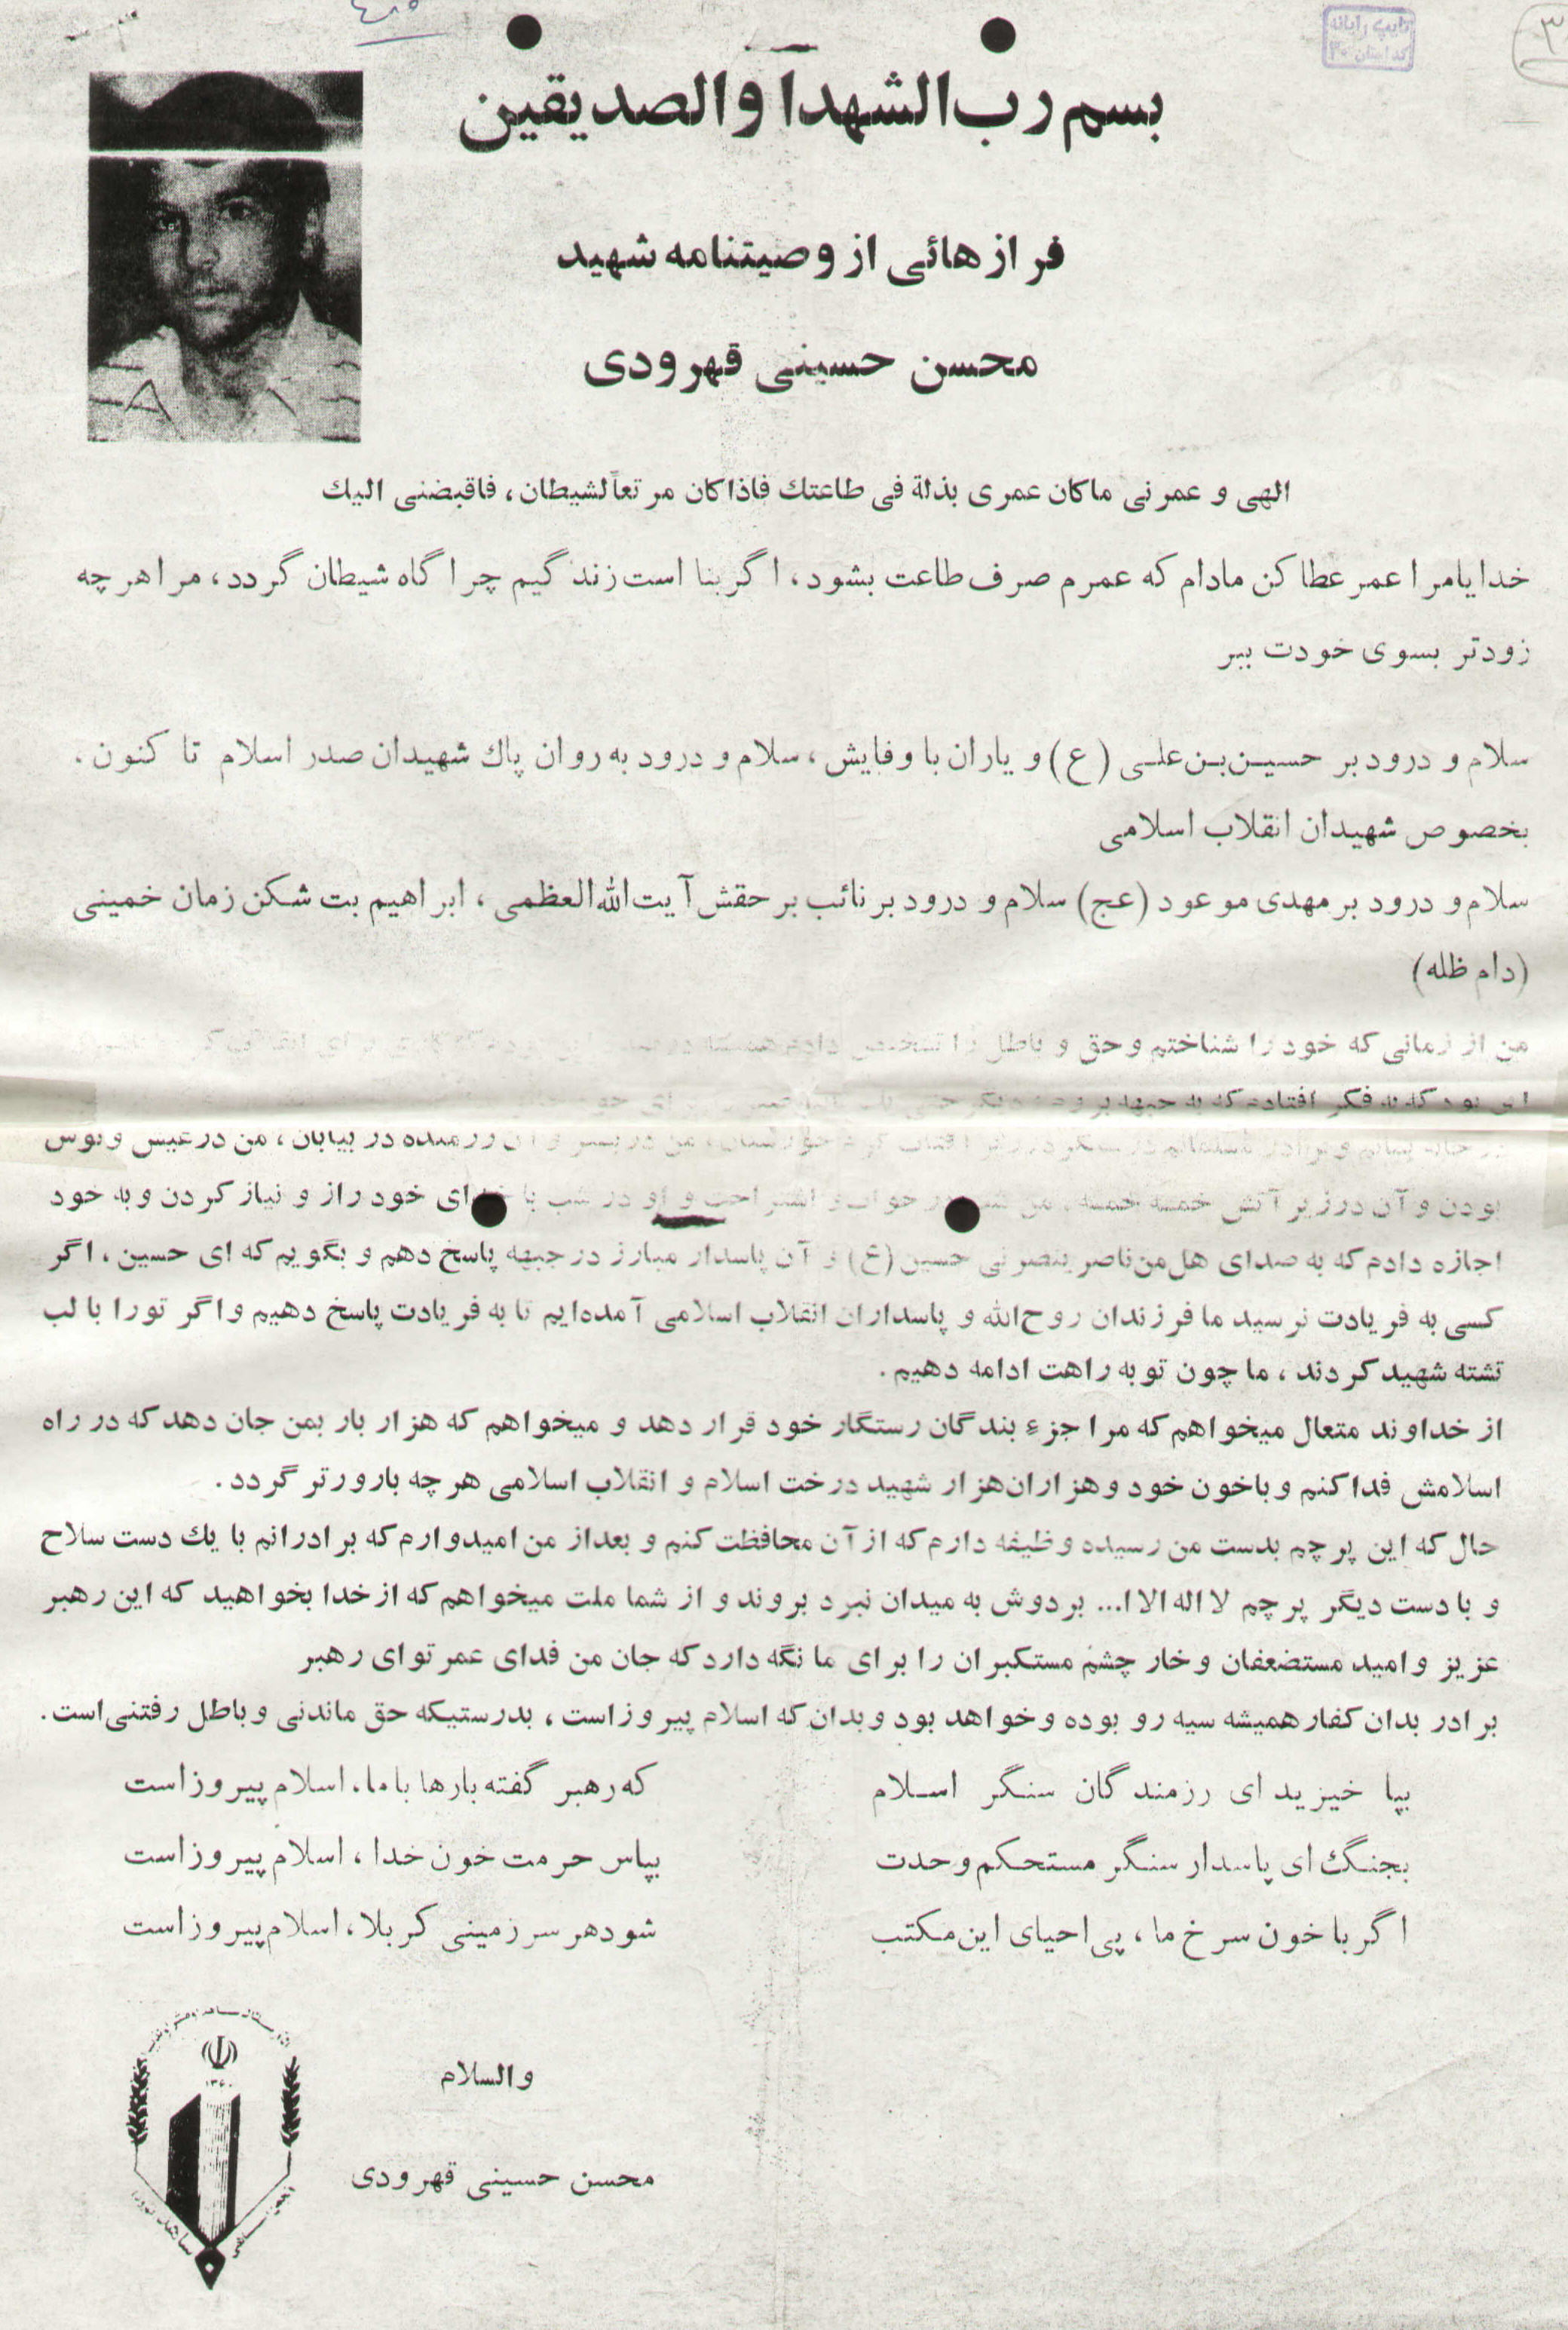 ۳
تایپ رایانه
کد استان ۳۰
بسم رب‌الشهدآ والصدیقین
فرازهائی از وصیتنامه شهید
محسن حسینی قهرودی
الهی و عمرنی ماکان عمری بذلة فی طاعتك فاذاکان مرتعاً لشیطان، فاقبضنی الیك
خدایامرا عمر عطا کن مادام که عمرم صرف طاعت بشود، اگر بنا است زندگیم چراگاه شیطان گردد، مرا هرچه
زودتر بسوی خودت ببر
سلام و درود بر حسین‌بن‌علی (ع) و یاران با وفایش، سلام و درود به روان پاك شهیدان صدر اسلام تا کنون.
بخصوص شهیدان انقلاب اسلامی
سلام و درود بر مهدی موعود (عج) سلام و درود بر نائب بر حقش آیت‌الله‌العظمی، ابراهیم بت شکن زمان خمینی
(دام ظله)
من از زمانی که خود را شناختم و حق و باطل را تشخیص دادم
این بود که به فکر افتادم که به جبهه بروم
در بیابان، من در عیش و نوش
بودن و آن در زیر آتش خمسه خمسه، من شب در خواب و استراحت و او در شب با خدای خود راز و نیاز کردن و به خود
اجازه دادم که به صدای هل‌من‌ناصر ینصرنی حسین (ع) و آن پاسدار مبارز در جبهه پاسخ دهم و بگویم که ای حسین، اگر
کسی به فریادت نرسید ما فرزندان روح‌الله و پاسداران انقلاب اسلامی آمده‌ایم تا به فریادت پاسخ دهیم و اگر تو را با لب
تشته شهید کردند، ما چون تو به راهت ادامه دهیم.
از خداوند متعال میخواهم که مرا جزء بندگان رستگار خود قرار دهد و میخواهم که هزار بار بمن جان دهد که در راه
اسلامش فدا کنم و باخون خود و هزاران‌هزار شهید درخت اسلام و انقلاب اسلامی هر چه بارورتر گردد.
حال که این پرچم بدست من رسیده وظیفه دارم که از آن محافظت کنم و بعداز من امیدوارم که برادرانم با یك دست سلاح
و با دست دیگر پرچم لااله الاا... بردوش به میدان نبرد بروند و از شما ملت میخواهم که از خدا بخواهید که این رهبر
عزیز و امید مستضعفان و خار چشم مستکبران را برای ما نگه دارد که جان من فدای عمر تو ای رهبر
برادر بدان کفار همیشه سیه رو بوده و خواهد بود و بدان که اسلام پیروزاست، بدرستیکه حق ماندنی و باطل رفتنی‌است.
بپا خیزید ای رزمندگان سنگر اسلام که رهبر گفته بارها باما، اسلام پیروزاست
بجنگ ای پاسدار سنگر مستحکم وحدت بپاس حرمت خون خدا، اسلام پیروزاست
اگر با خون سرخ ما، پی احیای این مکتب شود هر سرزمینی کربلا، اسلام پیروزاست
والسلام
محسن حسینی قهرودی
۱۳۶۰